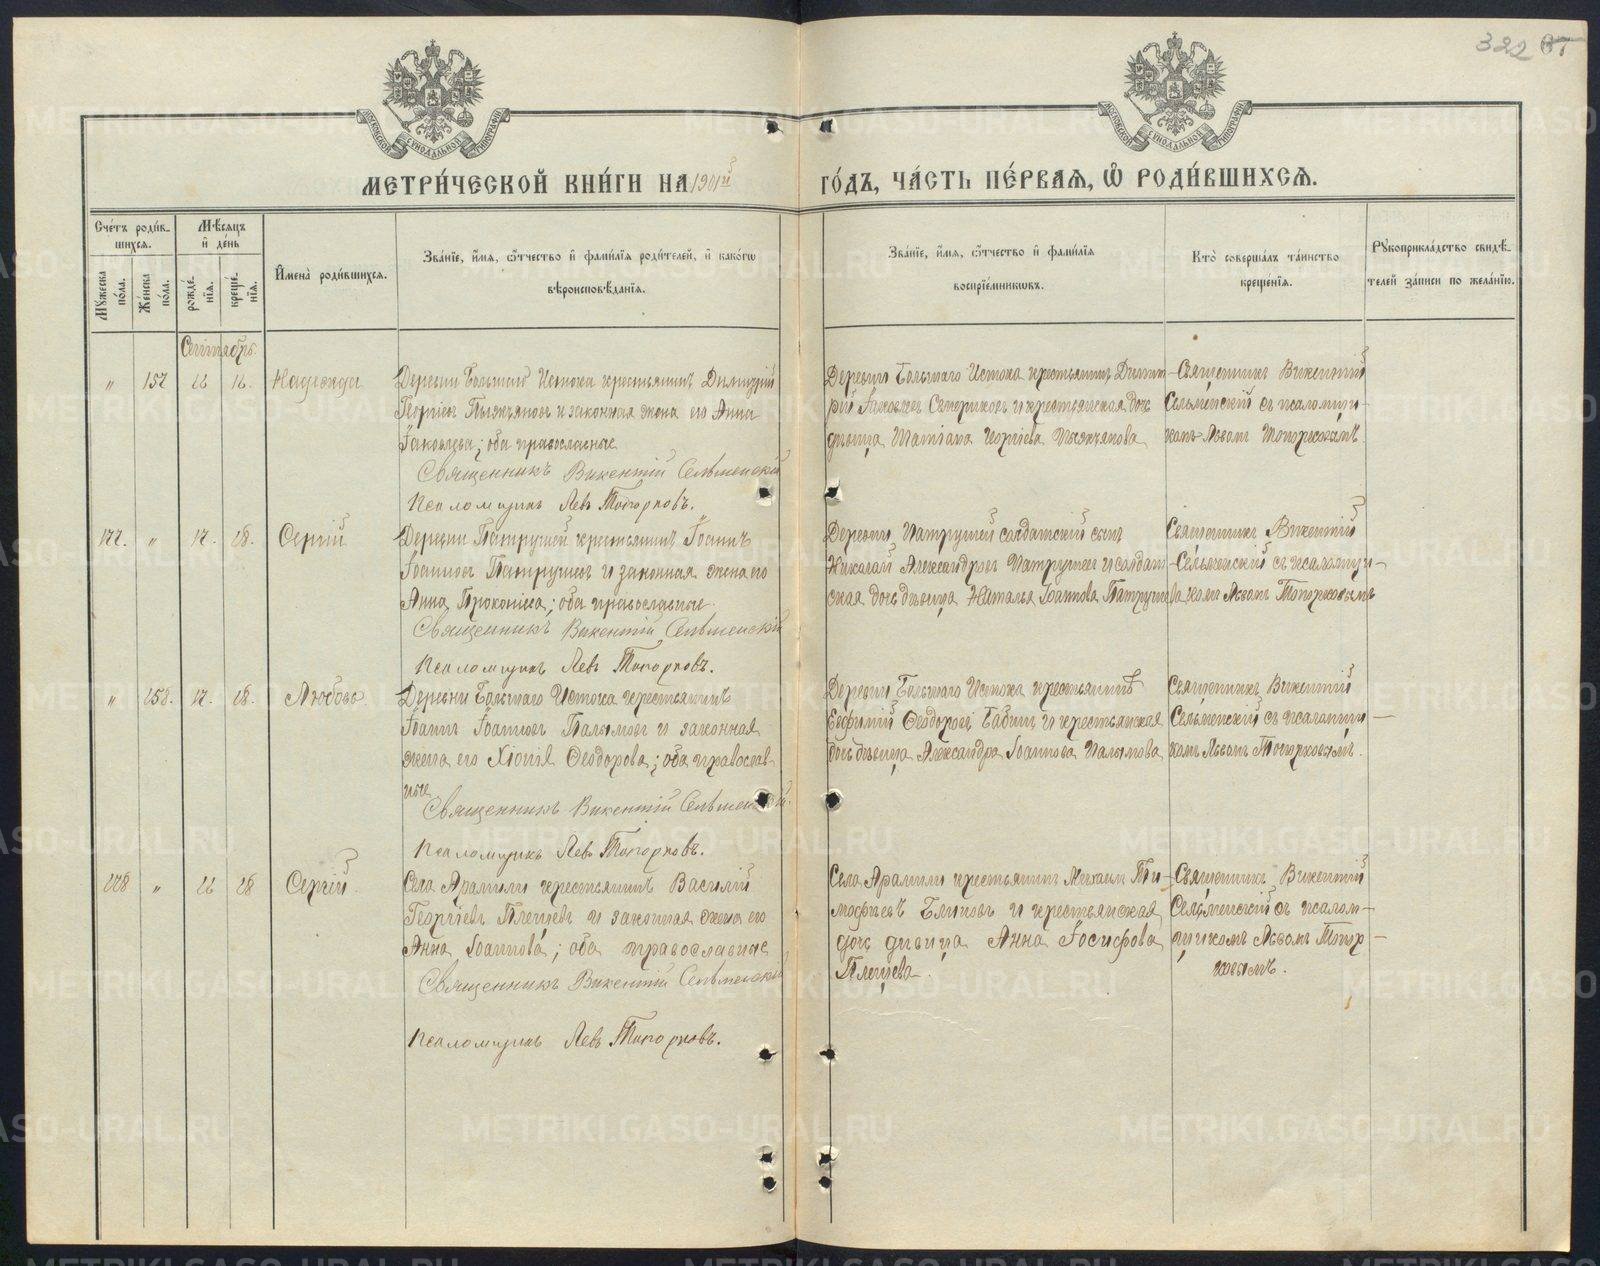 322
МЕТРИ́ЧЕСКОЙ КНИ́ГИ НА 1901й ГО́ДЪ, ЧА́СТЬ ПЕ́РВАЯ, Ѡ РОДИ́ВШИХСЯ.
Сче́тъ роди́в-
шихся.
Мꙋжеска по́ла.
Же́нска по́ла.
Мѣ́сяцъ
и҆ де́нь
рожде́-
нїя.
креще́-
нїя.
И҆мена̀ роди́вшихся.
Зва́нїе, и҆́мя, ѻ҆́тчество и҆ фами́лїя роди́телей, и҆ како́гѡ
вѣроисповѣ́данїя.
Зва́нїе, и҆́мя, ѻ҆́тчество и҆ фами́лїя
воспрїе́мниковъ.
Кто̀ соверша́лъ та́инство
креще́нїя.
Рꙋкоприкла́дство свидѣ́-
телей за́писи по жела́нїю.
Сентябрь
" 157 16 16. Надежда
Деревни Большаго Истока крестьянинъ Димитрій
Георгіевъ Пьянковъ и законная жена его Анна
Іаковлева; оба православные
Священникъ Викентій Сельменскій
Псаломщикъ Левъ Топорковъ.
Деревни Большаго Истока крестьянинъ Димит
рій Іаковлевъ и крестьянская дочь
дѣвица Татіана Георгіева
Священникъ Викентій
Сельменскій съ псаломщи-
комъ Львомъ Топорковымъ
177. " 17. 18. Сергій
Деревни Патрушей крестьянинъ Іоаннъ
Іоанновъ Патрушевъ и законная жена его
Анна Прокопіева; оба православные
Священникъ Викентій Сельменскій
Псаломщикъ Левъ Топорковъ.
Деревни Патрушей солдатскій сынъ
Николай Александровъ Патрушевъ и солдат
ская дочь дѣвица Наталья Іоаннова Патрушева
Священникъ Викентій
Сельменскій съ псаломщи-
комъ Львомъ Топорковымъ
" 158. 17. 18. Любовь
Деревни Большаго Истока крестьянинъ
Іоаннъ Іоанновъ Палымовъ и законная
жена его Хіонія Ѳеодорова; оба православ-
ные
Священникъ Викентій Сельменскій.
Псаломщикъ Левъ Топорковъ.
Деревни Большаго Истока крестьянинъ
Евфимій Ѳеодоровъ Бабинъ и крестьянская
дочь дѣвица Александра Іоаннова Палымова
Священникъ Викентій
Сельменскій съ псаломщи-
комъ Львомъ Топорковымъ.
178 " 16 18 Сергій.
Села Арамили крестьянинъ Василій
Георгіевъ Плещевъ и законная жена его
Анна Іоаннова; оба православные
Священникъ Викентій Сельменскій
Псаломщикъ Левъ Топорковъ.
Села Арамили крестьянинъ Михаилъ Ти-
моѳеевъ Блиновъ и крестьянская
дочь дѣвица Анна Іосифова
Плещева.
Священникъ Викентій
Сельменскій съ псалом-
щикомъ Львомъ Топор-
ковымъ.
METRIKI.GASO-URAL.RU